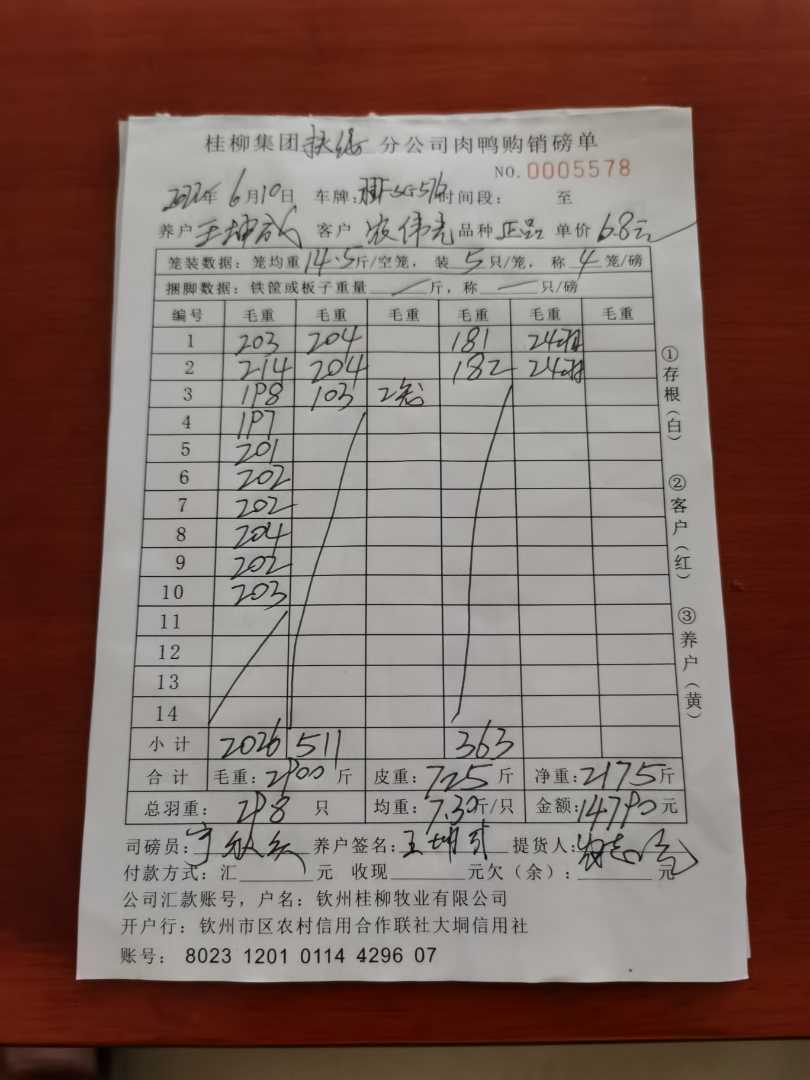 桂柳集团扶绥分公司肉鸭购销磅单
NO. 0005578
2022年6月10日 车牌: 时间段: 至
养户 王坤 客户 农伟光 品种 正品 单价 6.8元
笼装数据: 笼均重 14.5 斤/空笼, 装 5 只/笼, 称 4 笼/磅
捆脚数据: 铁筐或板子重量 — 斤, 称 — 只/磅
编号 毛重 毛重 毛重 毛重 毛重 毛重
1 203 204 181 24羽
2 214 204 182 24羽
3 198 103 2笼
4 197
5 201
6 202
7 202
8 204
9 202
10 203
11
12
13
14
小计 2026 511 363
合计 毛重: 2900 斤 皮重: 725 斤 净重: 2175 斤
总羽重: 298 只 均重: 7.30 斤/只 金额: 14790 元
司磅员: 养户签名: 王坤 提货人:
付款方式: 汇 元 收现 元欠(余): 元
公司汇款账号, 户名: 钦州桂柳牧业有限公司
开户行: 钦州市区农村信用合作联社大垌信用社
账号: 8023 1201 0114 4296 07
①存根(白) ②客户(红) ③养户(黄)